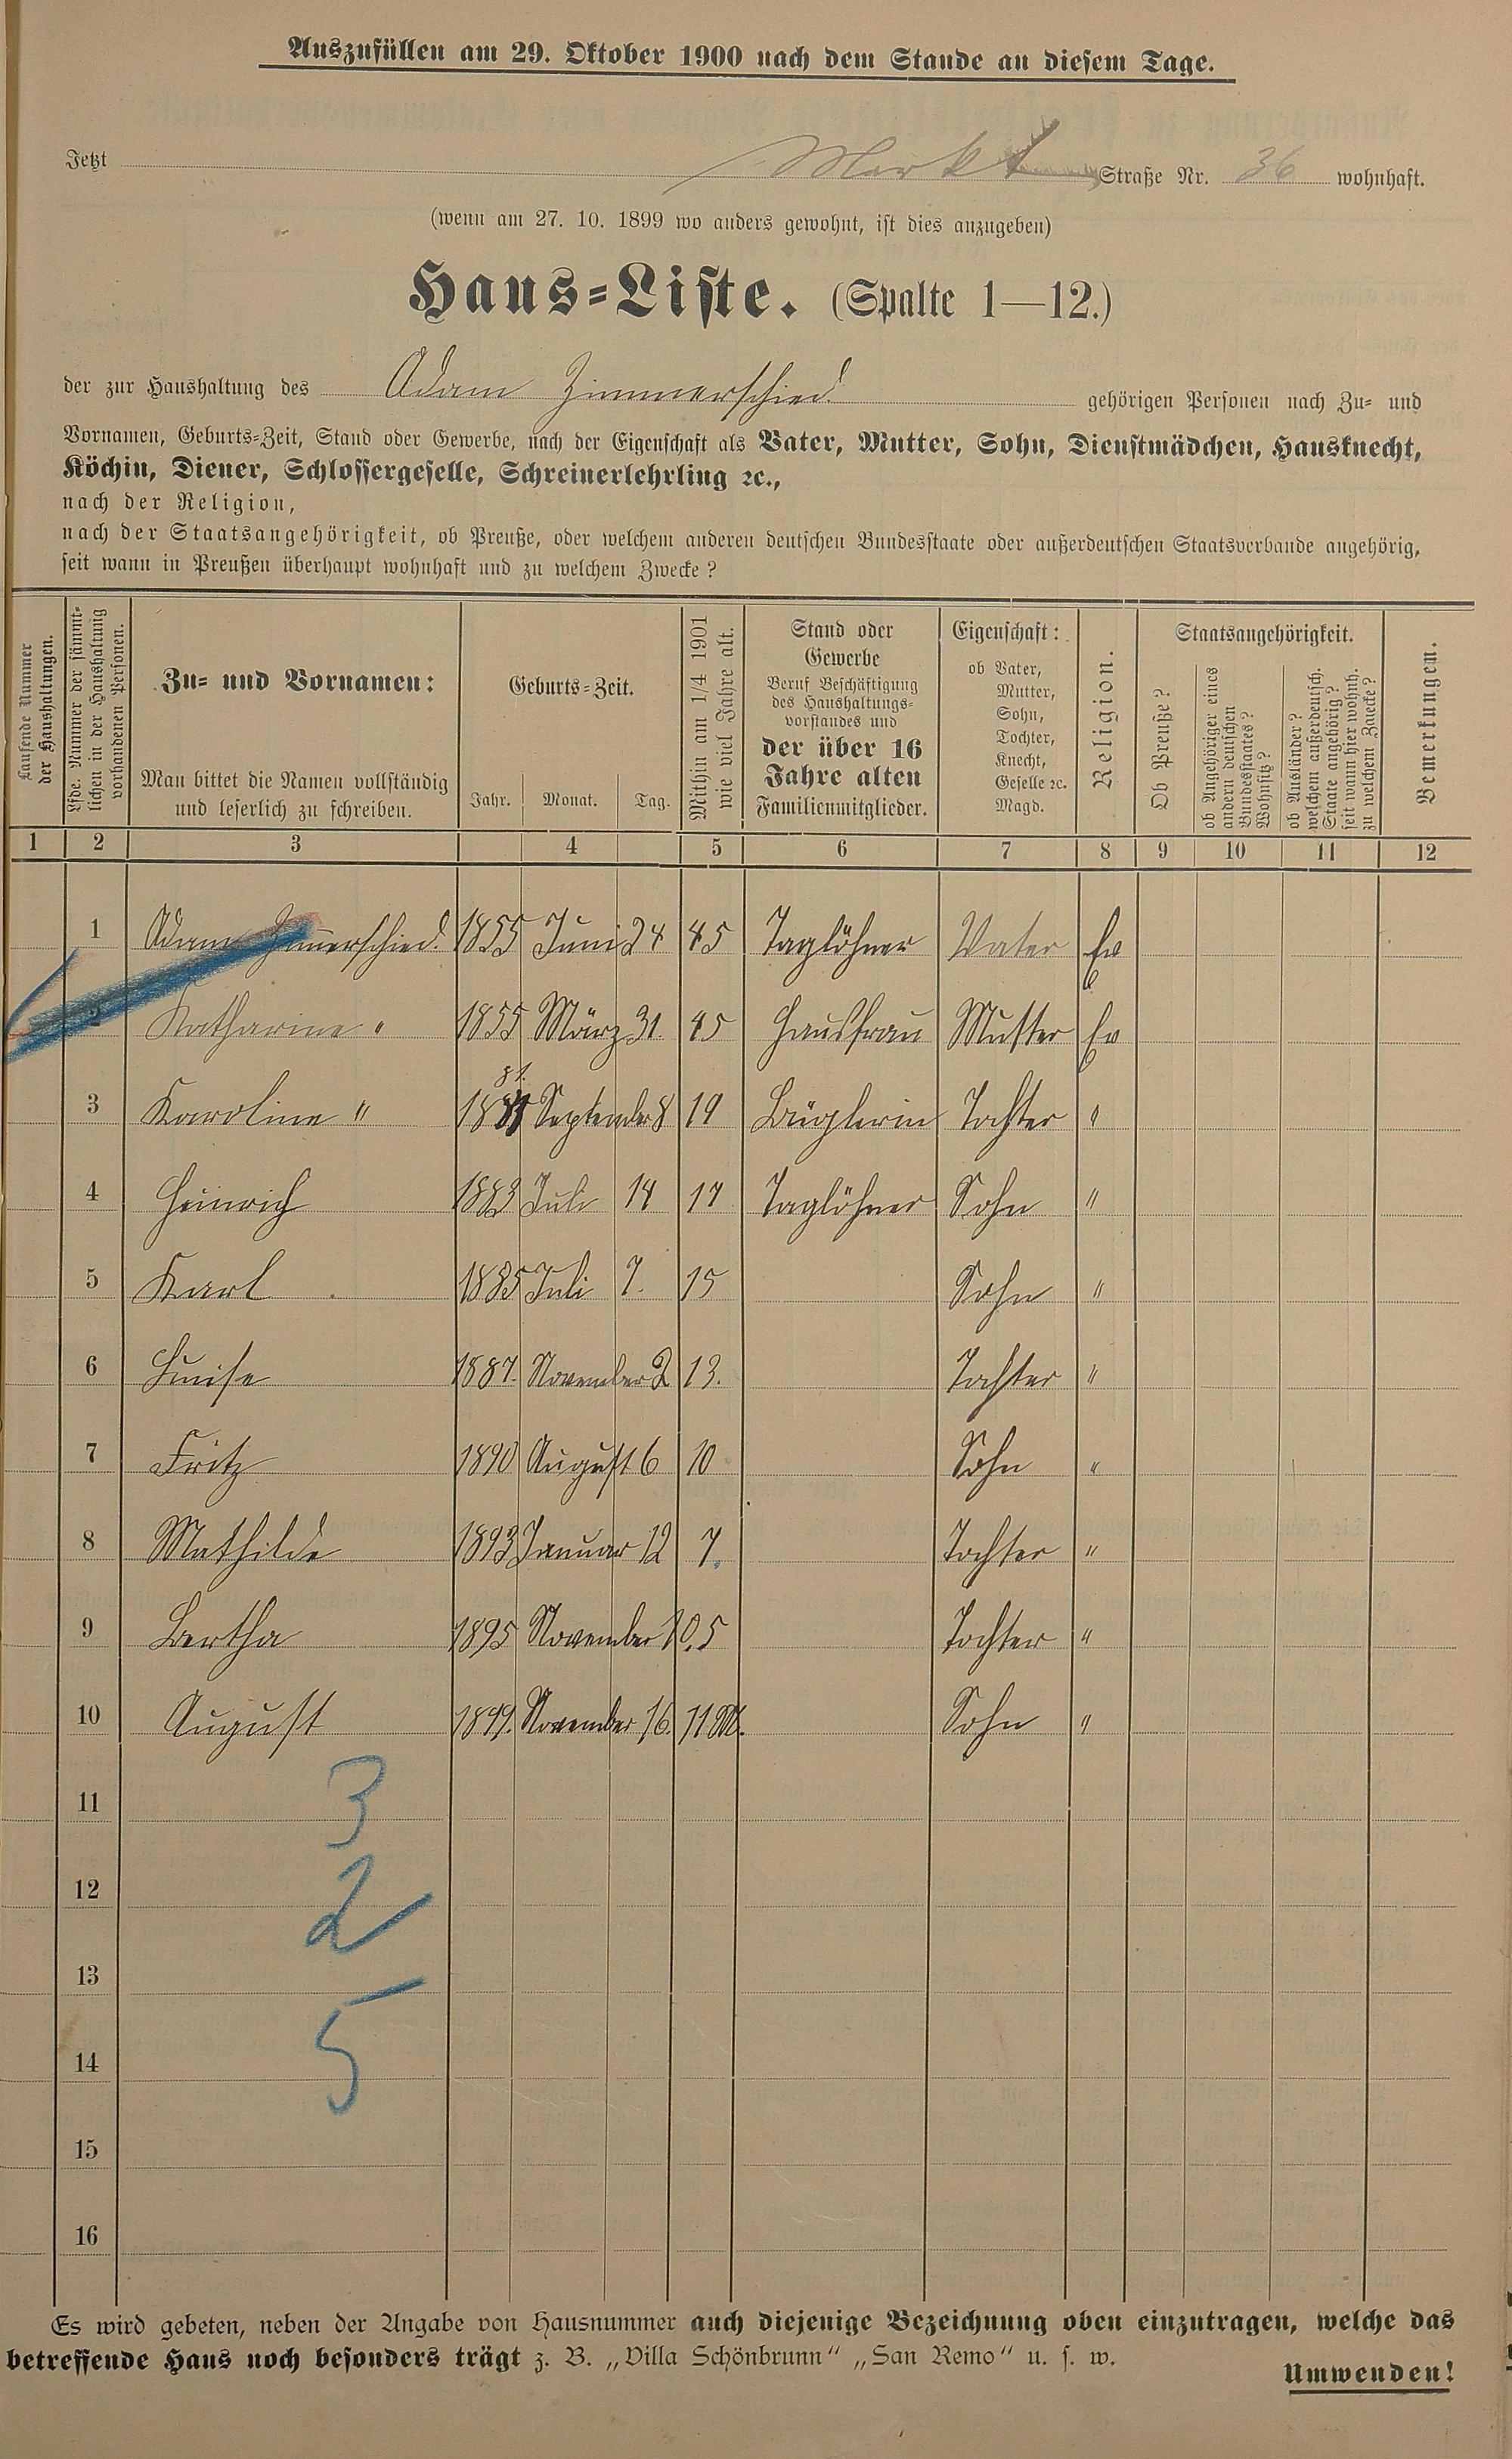 Auszufüllen am 29. Oktober 1900 nach dem Stande an diesem Tage.
Jetzt Markt Straße Nr. 36 wohnhaft.
(wenn am 27. 10. 1899 wo anders gewohnt, ist dies anzugeben)
Haus-Liste. (Spalte 1—12.)
der zur Haushaltung des Adam Zimmerschied gehörigen Personen nach Zu- und
Vornamen, Geburts-Zeit, Stand oder Gewerbe, nach der Eigenschaft als Vater, Mutter, Sohn, Dienstmädchen, Hausknecht,
Köchin, Diener, Schlossergeselle, Schreinerlehrling ꝛc.,
nach der Religion,
nach der Staatsangehörigkeit, ob Preuße, oder welchem anderen deutschen Bundesstaate oder außerdeutschen Staatsverbande angehörig,
seit wann in Preußen überhaupt wohnhaft und zu welchem Zwecke?
Laufende Nummer
der Haushaltungen.
Lfde. Nummer der sämmt-
lichen in der Haushaltung
vorhandenen Personen.
Zu- und Vornamen:
Man bittet die Namen vollständig
und leserlich zu schreiben.
Geburts-Zeit.
Jahr. Monat. Tag.
Mithin am 1/4 1901
wie viel Jahre alt.
Stand oder
Gewerbe
Beruf Beschäftigung
des Haushaltungs-
vorstandes und
der über 16
Jahre alten
Familienmitglieder.
Eigenschaft:
ob Vater,
Mutter,
Sohn,
Tochter,
Knecht,
Geselle ꝛc.
Magd.
Religion.
Staatsangehörigkeit.
Ob Preuße?
ob Angehöriger eines
andern deutschen
Bundesstaates?
Wohnsitz?
ob Ausländer?
welchem außerdeutsch.
Staate angehörig?
seit wann hier wohnh.
zu welchem Zwecke?
Bemerkungen.
1 2 3 4 5 6 7 8 9 10 11 12
1 Adam Zimmerschied. 1855 Juni 24 45 Taglöhner Vater Ev
2 Katharine " 1855 März 31. 45 Hausfrau Mutter Ev
81.
3 Karoline " 18 September 8 19 Büglerin Tochter "
4 Heinrich 1883 Juli 14 17 Taglöhner Sohn "
5 Karl 1885 Juli 7. 15 Sohn "
6 Luise 1887. November 2 13. Tochter "
7 Fritz 1890 August 6 10 Sohn "
8 Mathilde 1893 Januar 12 7. Tochter "
9 Bertha 1895 November 10. 5 Tochter "
10 August 1899. November 16. 11 M. Sohn "
11 3
12 2
13
14 5
15
16
Es wird gebeten, neben der Angabe von Hausnummer auch diejenige Bezeichnung oben einzutragen, welche das
betreffende Haus noch besonders trägt z. B. „Villa Schönbrunn“ „San Remo“ u. s. w.
Umwenden!